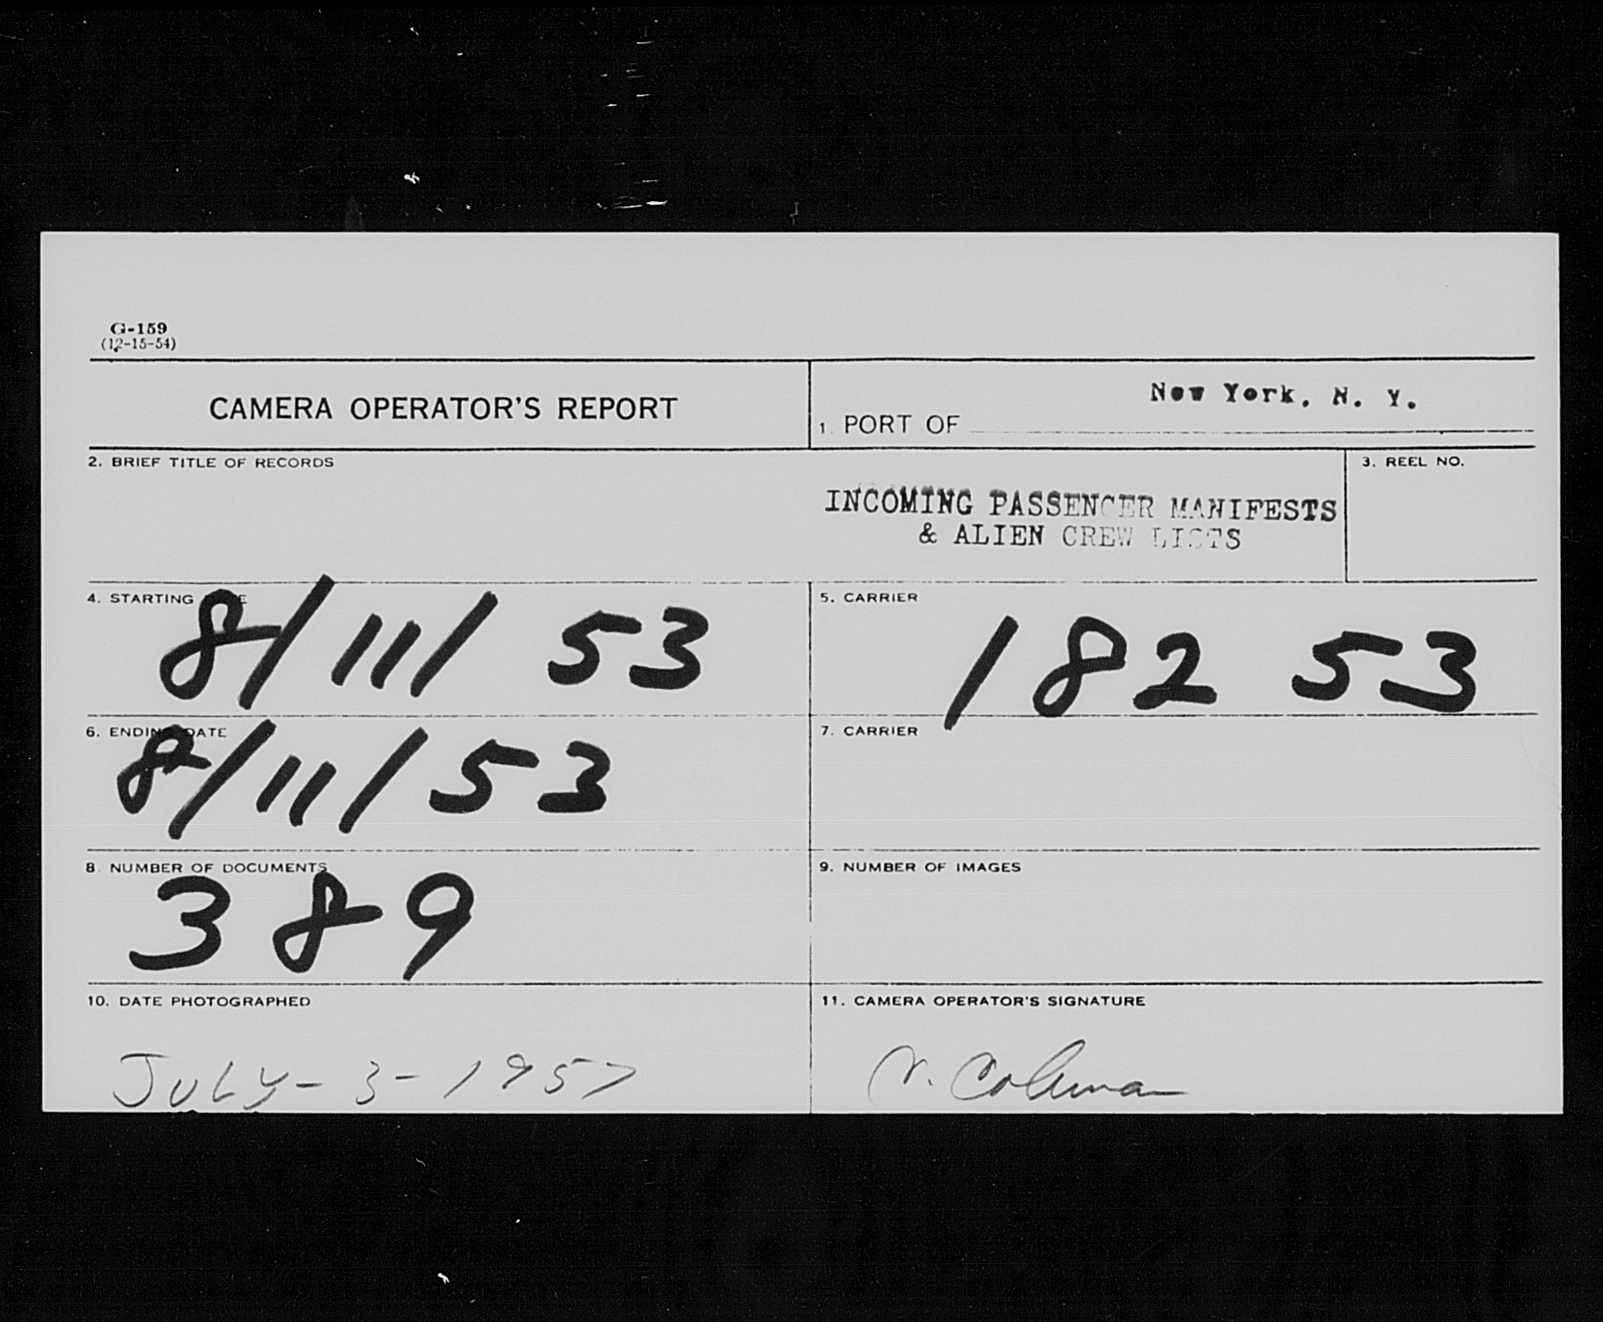 G-159
(12-15-54)
CAMERA OPERATOR'S REPORT
New York, N. Y.
1. PORT OF
2. BRIEF TITLE OF RECORDS
3. REEL NO.
INCOMING PASSENGER MANIFESTS
& ALIEN CREW LISTS
4. STARTING DATE
8/11/53
5. CARRIER
18253
6. ENDING DATE
8/11/53
7. CARRIER
8. NUMBER OF DOCUMENTS
389
9. NUMBER OF IMAGES
10. DATE PHOTOGRAPHED
JULY-3-1957
11. CAMERA OPERATOR'S SIGNATURE